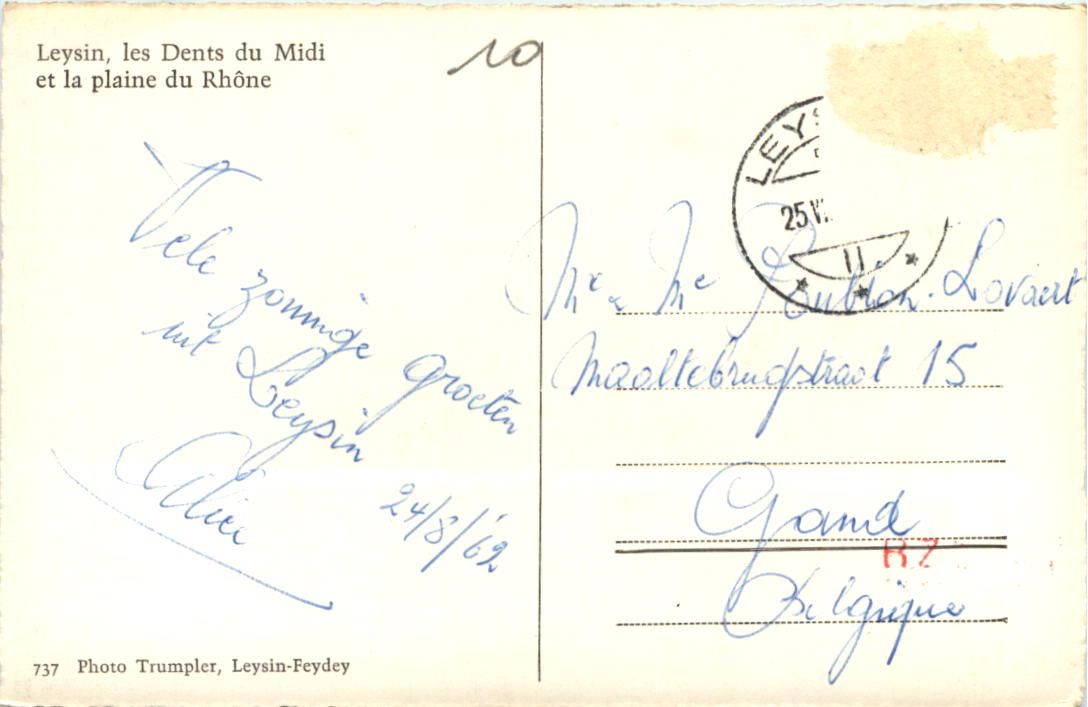 Leysin, les Dents du Midi
et la plaine du Rhône
10
LEYS
25.VI
11
Vele zonnige groeten
uit Leysin
Alice
24/8/'62
Mr & Me Lovaert
Maaltebrugstraat 15
Gand
B7
Belgique
737 Photo Trumpler, Leysin-Feydey